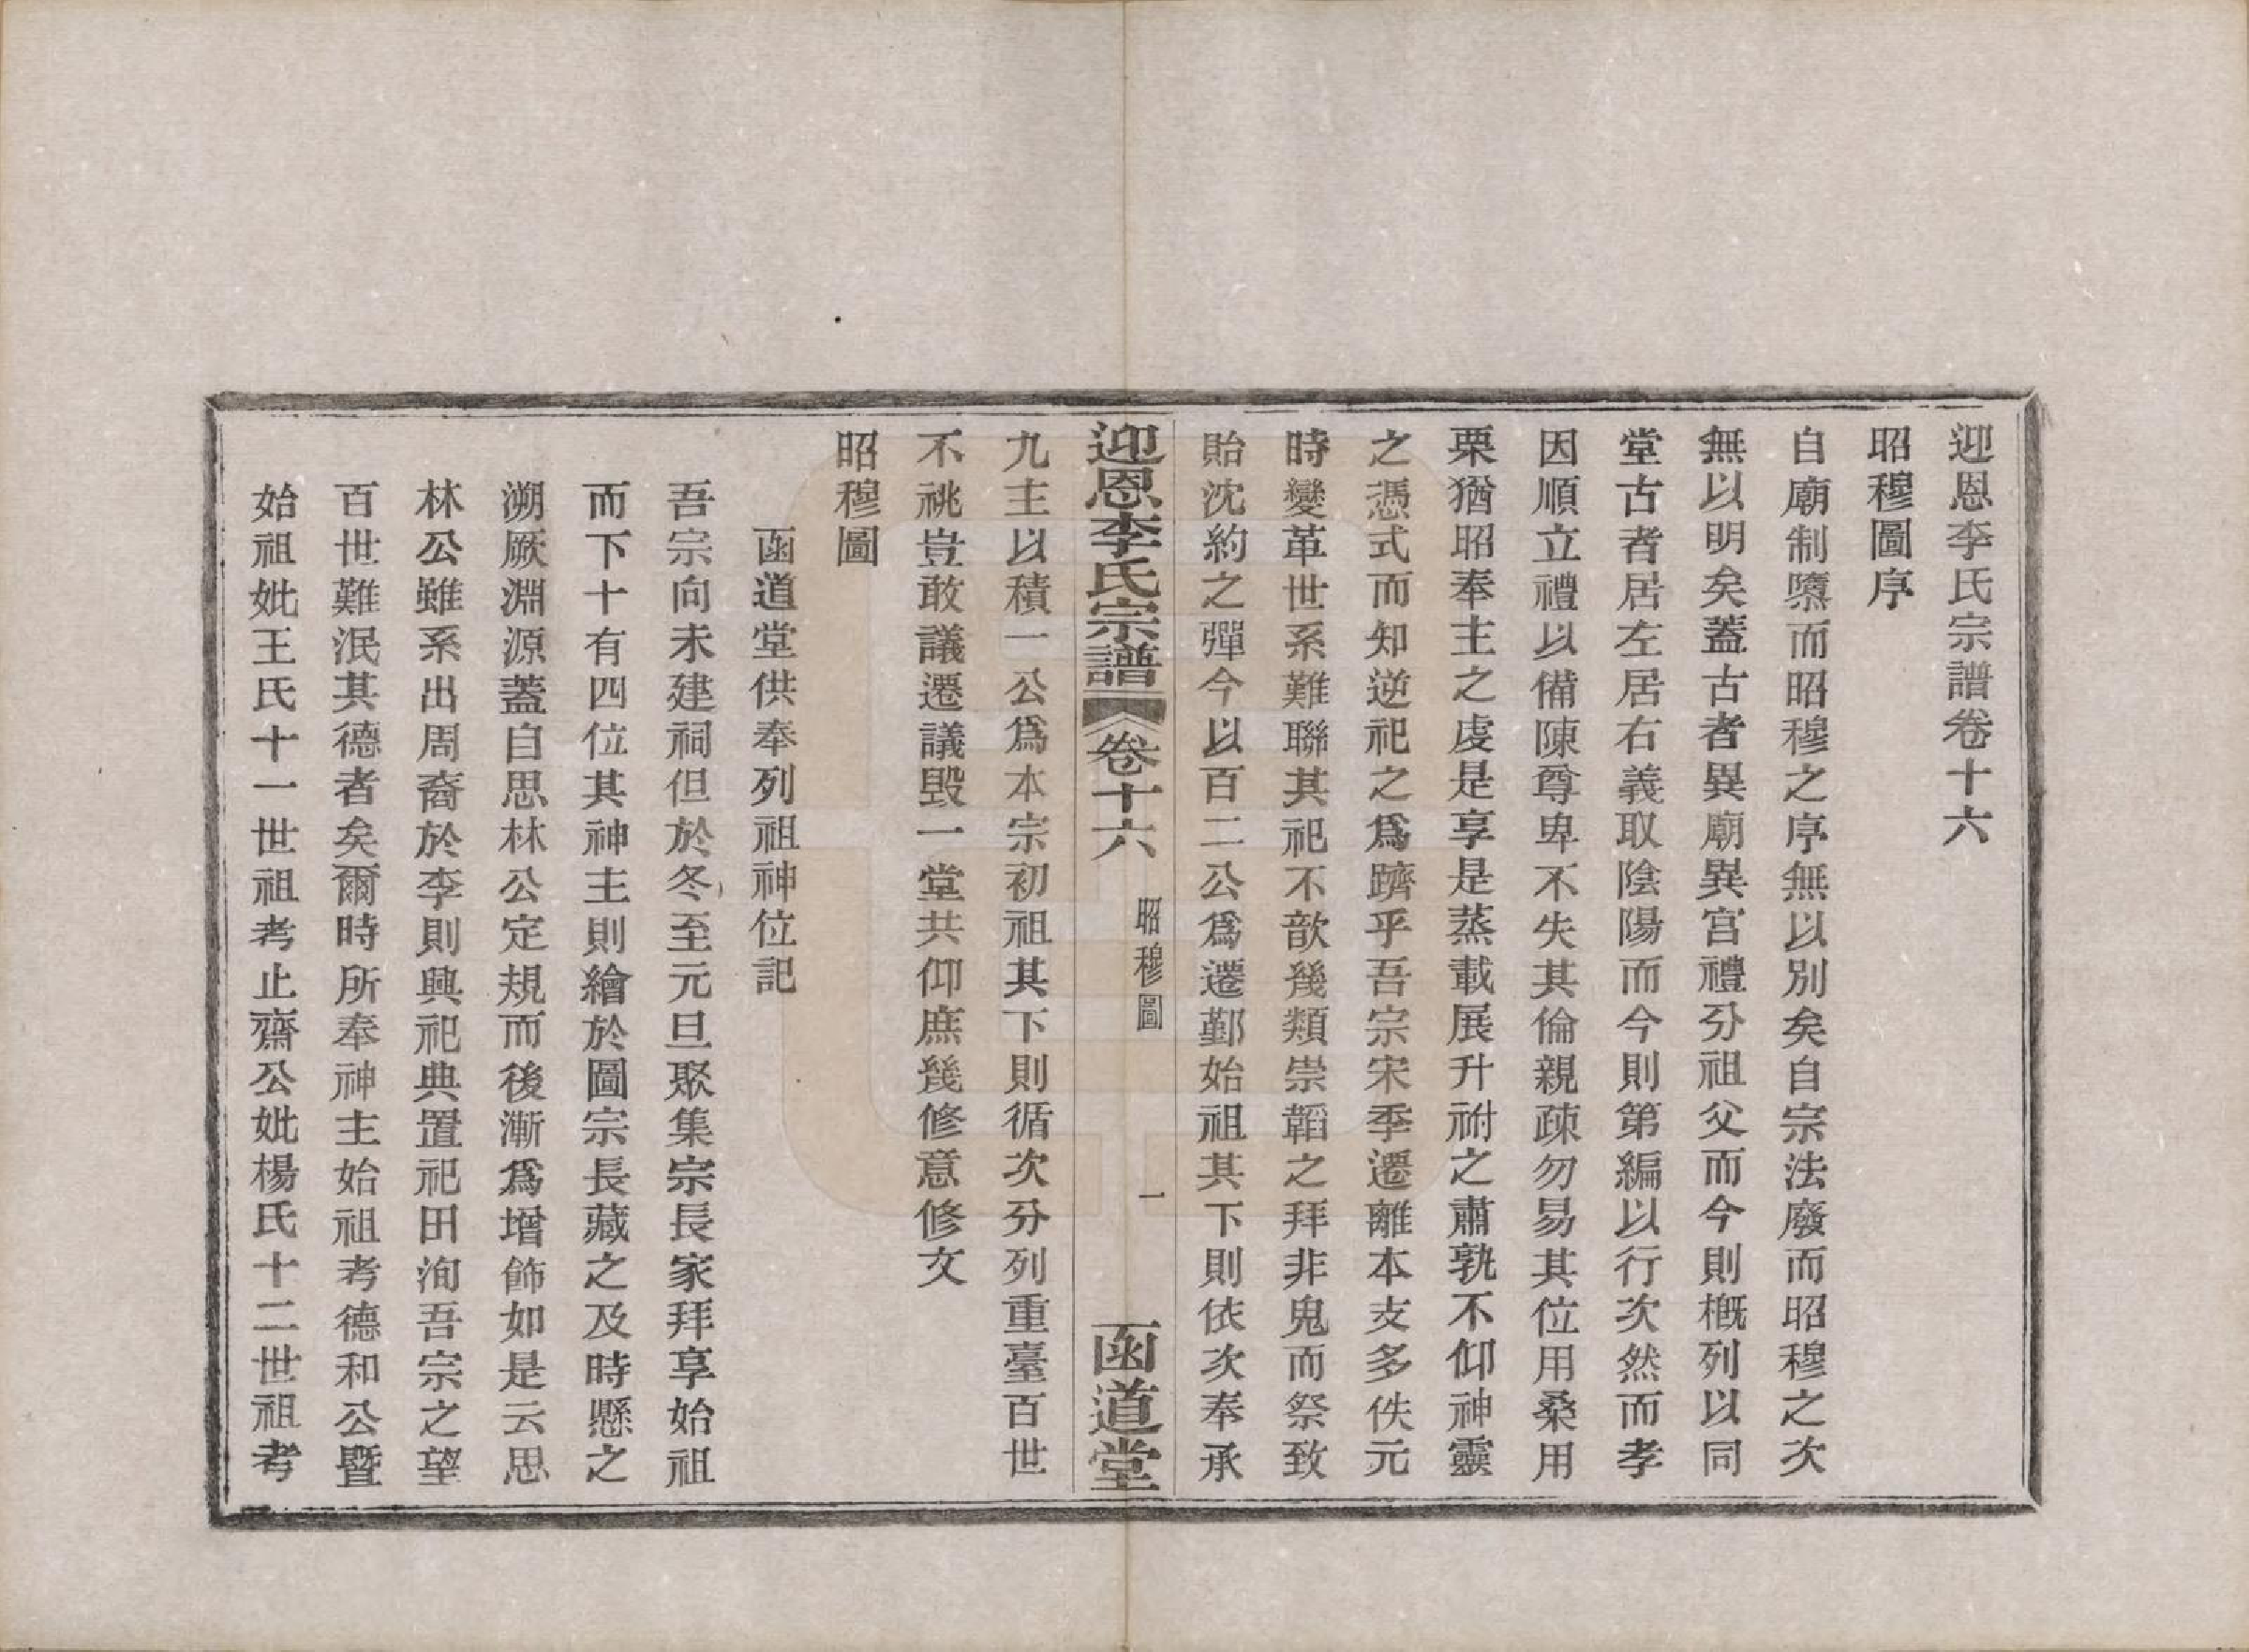 迎恩李氏宗譜卷十六
昭穆圖序
自廟制隳而昭穆之序無以別矣自宗法廢而昭穆之次
無以明矣蓋古者異廟異宮禮分祖父而今則概列以同
堂古者居左居右義取陰陽而今則第編以行次然而孝
因順立禮以備陳尊卑不失其倫親疎勿易其位用桑用
栗猶昭奉主之虔是享是蒸載展升祔之肅孰不仰神靈
之憑式而知逆祀之爲躋乎吾宗宋季遷離本支多佚元
時變革世系難聯其祀不歆幾類崇韜之拜非鬼而祭致
貽沈約之彈今以百二公爲遷鄞始祖其下則依次奉承
迎恩李氏宗譜 卷十六 昭穆圖 一 函道堂
九主以積一公爲本宗初祖其下則循次分列重臺百世
不祧豈敢議遷議毀一堂共仰庶幾修意修文
昭穆圖
函道堂供奉列祖神位記
吾宗向未建祠但於冬至元旦聚集宗長家拜享始祖
而下十有四位其神主則繪於圖宗長藏之及時懸之
溯厥淵源蓋自思林公定規而後漸爲增飾如是云思
林公雖系出周裔於李則興祀典置祀田洵吾宗之望
百世難泯其德者矣爾時所奉神主始祖考德和公暨
始祖妣王氏十一世祖考止齋公妣楊氏十二世祖考